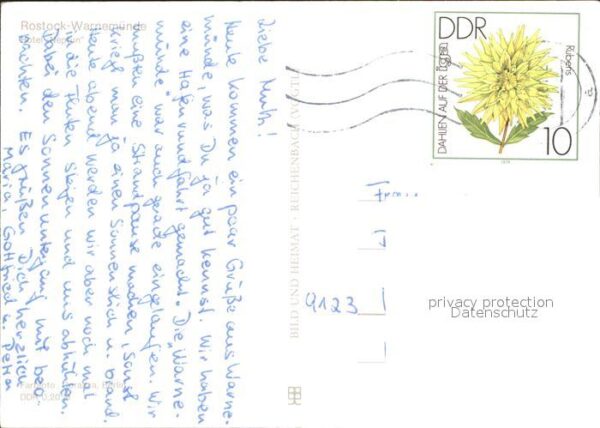 Rostock-Warnemünde
Hotel "Neptun"
Liebe Mutti!
Heute kommen ein paar Grüße aus Warne-
münde, was Du ja gut kennst. Wir haben
eine Hafenrundfahrt gemacht. Die "Warne-
münde" war auch gerade eingelaufen. Wir
mußten eine Strandpause machen, sonst
kriegt man ja einen Sonnenstich u. brand.
Heute abend werden wir aber noch mal
in die Fluten steigen und uns abkühlen.
Dabei den Sonnenuntergang mit beo-
bachten. Es grüßen Dich herzlich
Maria, Gottfried u. Petra
BILD UND HEIMAT · REICHENBACH (VOGTL)
DDR
DAHLIEN AUF DER iga
Rubens
10
1979
9123
privacy protection
Datenschutz
Berlin
DDR 0,20